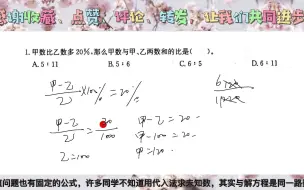 感谢收藏、点赞、评论、转发，让我们共同进步
1.甲数比乙数多20%,那么甲数与甲、乙两数和的比是( )。
A.5∶6 B.5∶6 C.6∶5 D.6∶11
甲-乙/乙 ×100% = 20%
甲-乙/乙 = 20/100
乙=100
甲-乙=20
甲-100=20
甲=120
值问题也有固定的公式，许多同学不知道用代入法求未知数，其实与解方程是同一路